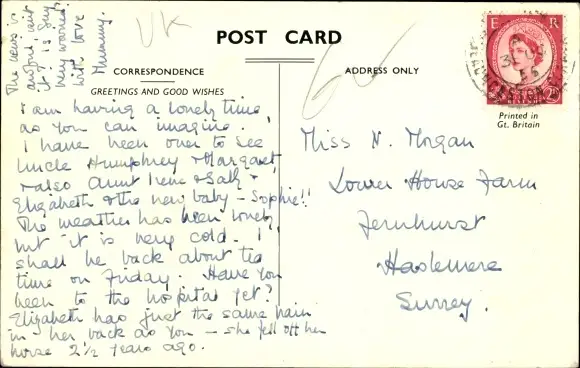 The news is
awful, isn't
it? is Guy
very worried?
with love
Mummy.
UK
POST CARD
CORRESPONDENCE
ADDRESS ONLY
GREETINGS AND GOOD WISHES
E R
POSTAGE REVENUE
2½D
Printed in
Gt. Britain
I am having a lovely time
as you can imagine.
I have been over to see
Uncle Humphrey & Margaret
& also Aunt Irene & Sally &
Elizabeth & the new baby - Sophie!!
The weather has been lovely
but it is very cold. I
shall be back about tea
time on Friday. Have you
been to the hospital yet?
Elizabeth has just the same pain
in her back as you - she fell off her
horse 2½ years ago.
Miss N. Morgan
Lower House Farm
Fernhurst
Haslemere
Surrey.